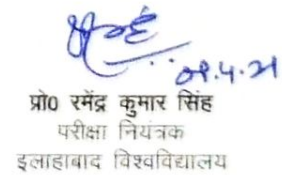 प्रो0 रमेंद्र कुमार सिंह
परीक्षा नियंत्रक
इलाहाबाद विश्वविद्यालय